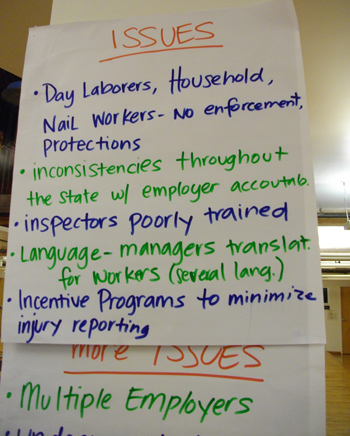 ISSUES
• Day Laborers, Household,
Nail Workers- No enforcement,
Protections
• inconsistencies throughout
the state w/ employer accountab.
• inspectors poorly trained
• Language- managers translat.
for workers (several lang.)
• Incentive Programs to minimize
injury reporting
more ISSUES
• Multiple Employers